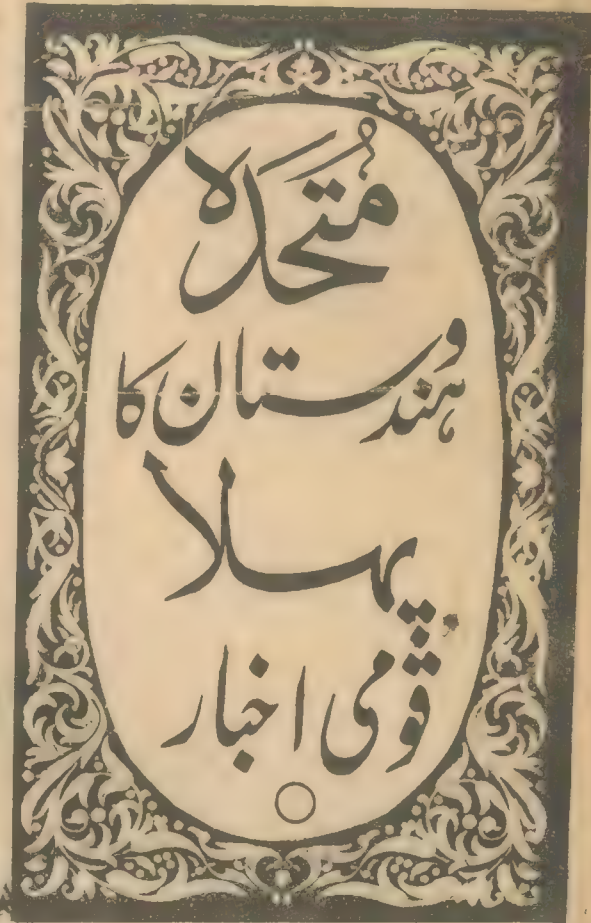 مُتحدہ
ہندوستان کا
پہلا
قومی اخبار